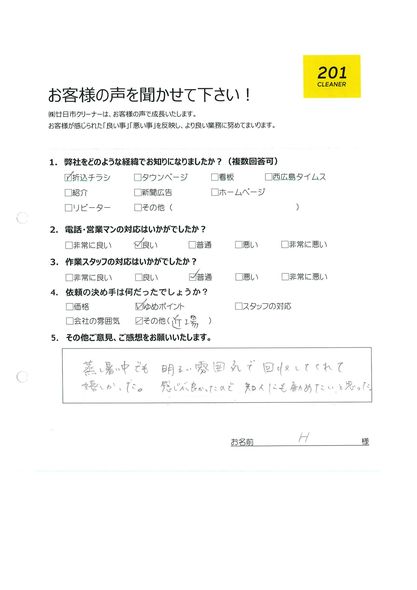 201
CLEANER
お客様の声を聞かせて下さい！
㈱廿日市クリーナーは、お客様の声で成長いたします。
お客様が感じられた「良い事」「悪い事」を反映し、より良い業務に努めてまいります。
1. 弊社をどのような経緯でお知りになりましたか？（複数回答可）
☑折込チラシ □タウンページ □看板 □西広島タイムス
□紹介 □新聞広告 □ホームページ
□リピーター □その他（ ）
2. 電話・営業マンの対応はいかがでしたか？
□非常に良い ☑良い □普通 □悪い □非常に悪い
3. 作業スタッフの対応はいかがでしたか？
□非常に良い □良い ☑普通 □悪い □非常に悪い
4. 依頼の決め手は何だったでしょうか？
□価格 ☑ゆめポイント □スタッフの対応
□会社の雰囲気 ☑その他（近場）
5. その他ご意見、ご感想をお願いいたします。
蒸し暑い中でも 明るい雰囲気で 回収してくれて
嬉しかった。 感じが良かったので 知人にも勧めたいと思った
お名前 H 様